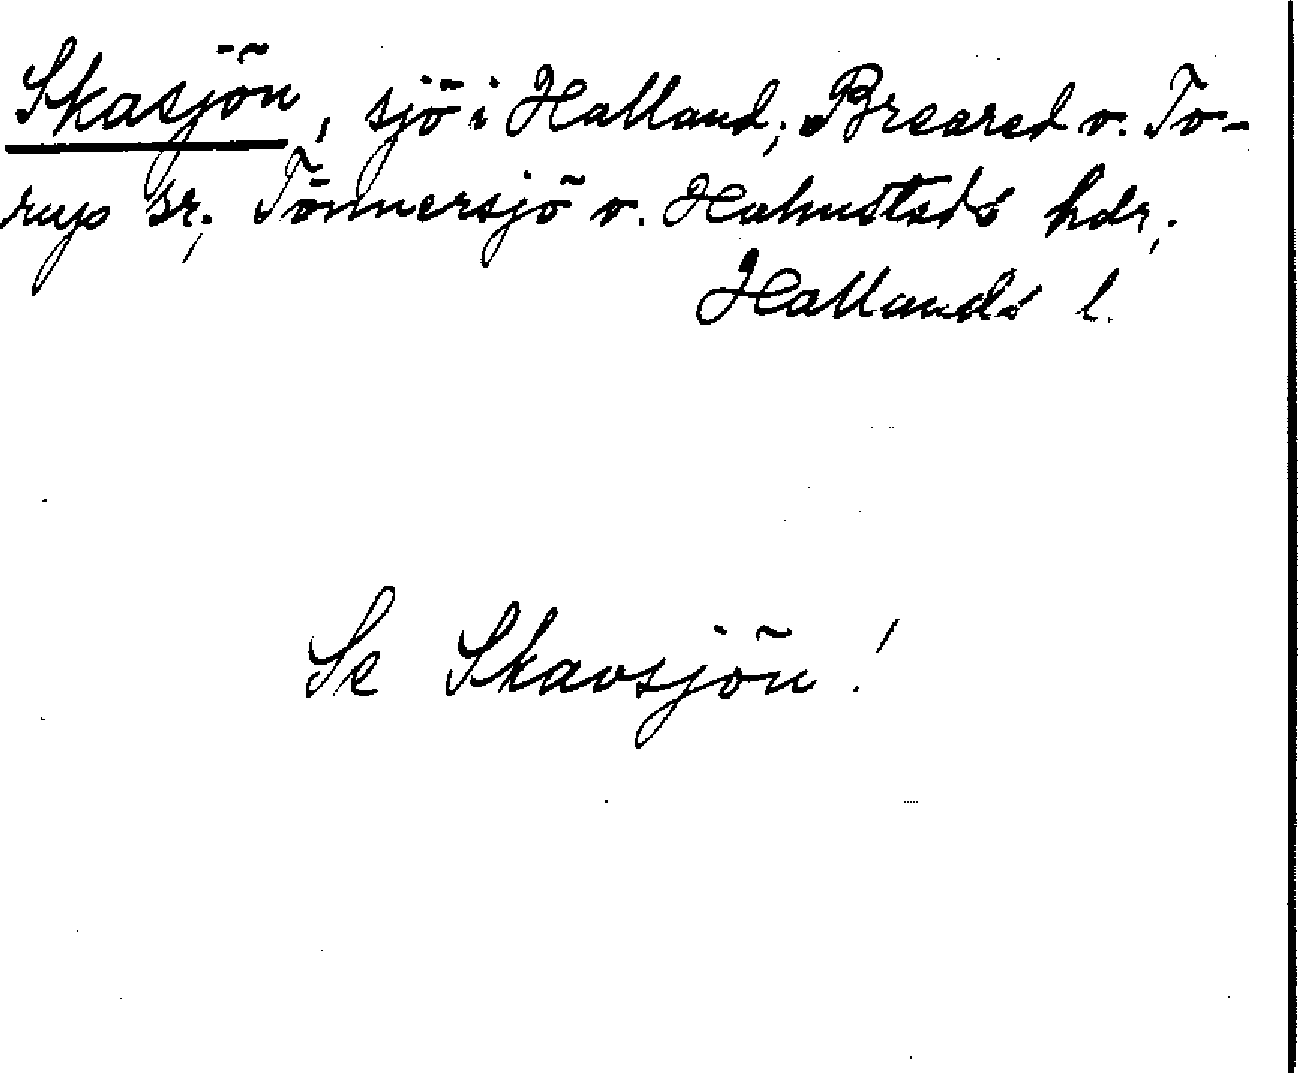 Skasjön, sjö i Halland; Breared o. To-
rup sr; Tönnersjö o. Halmstads hdr;
Hallands l.
Se Skavsjön!